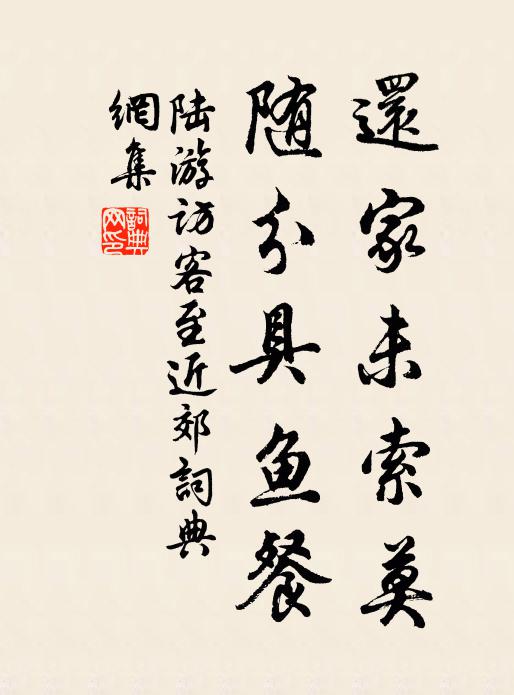 還家未索莫
随分具鱼餐
陆游访客至近郊詞典
網集
詞典
网印